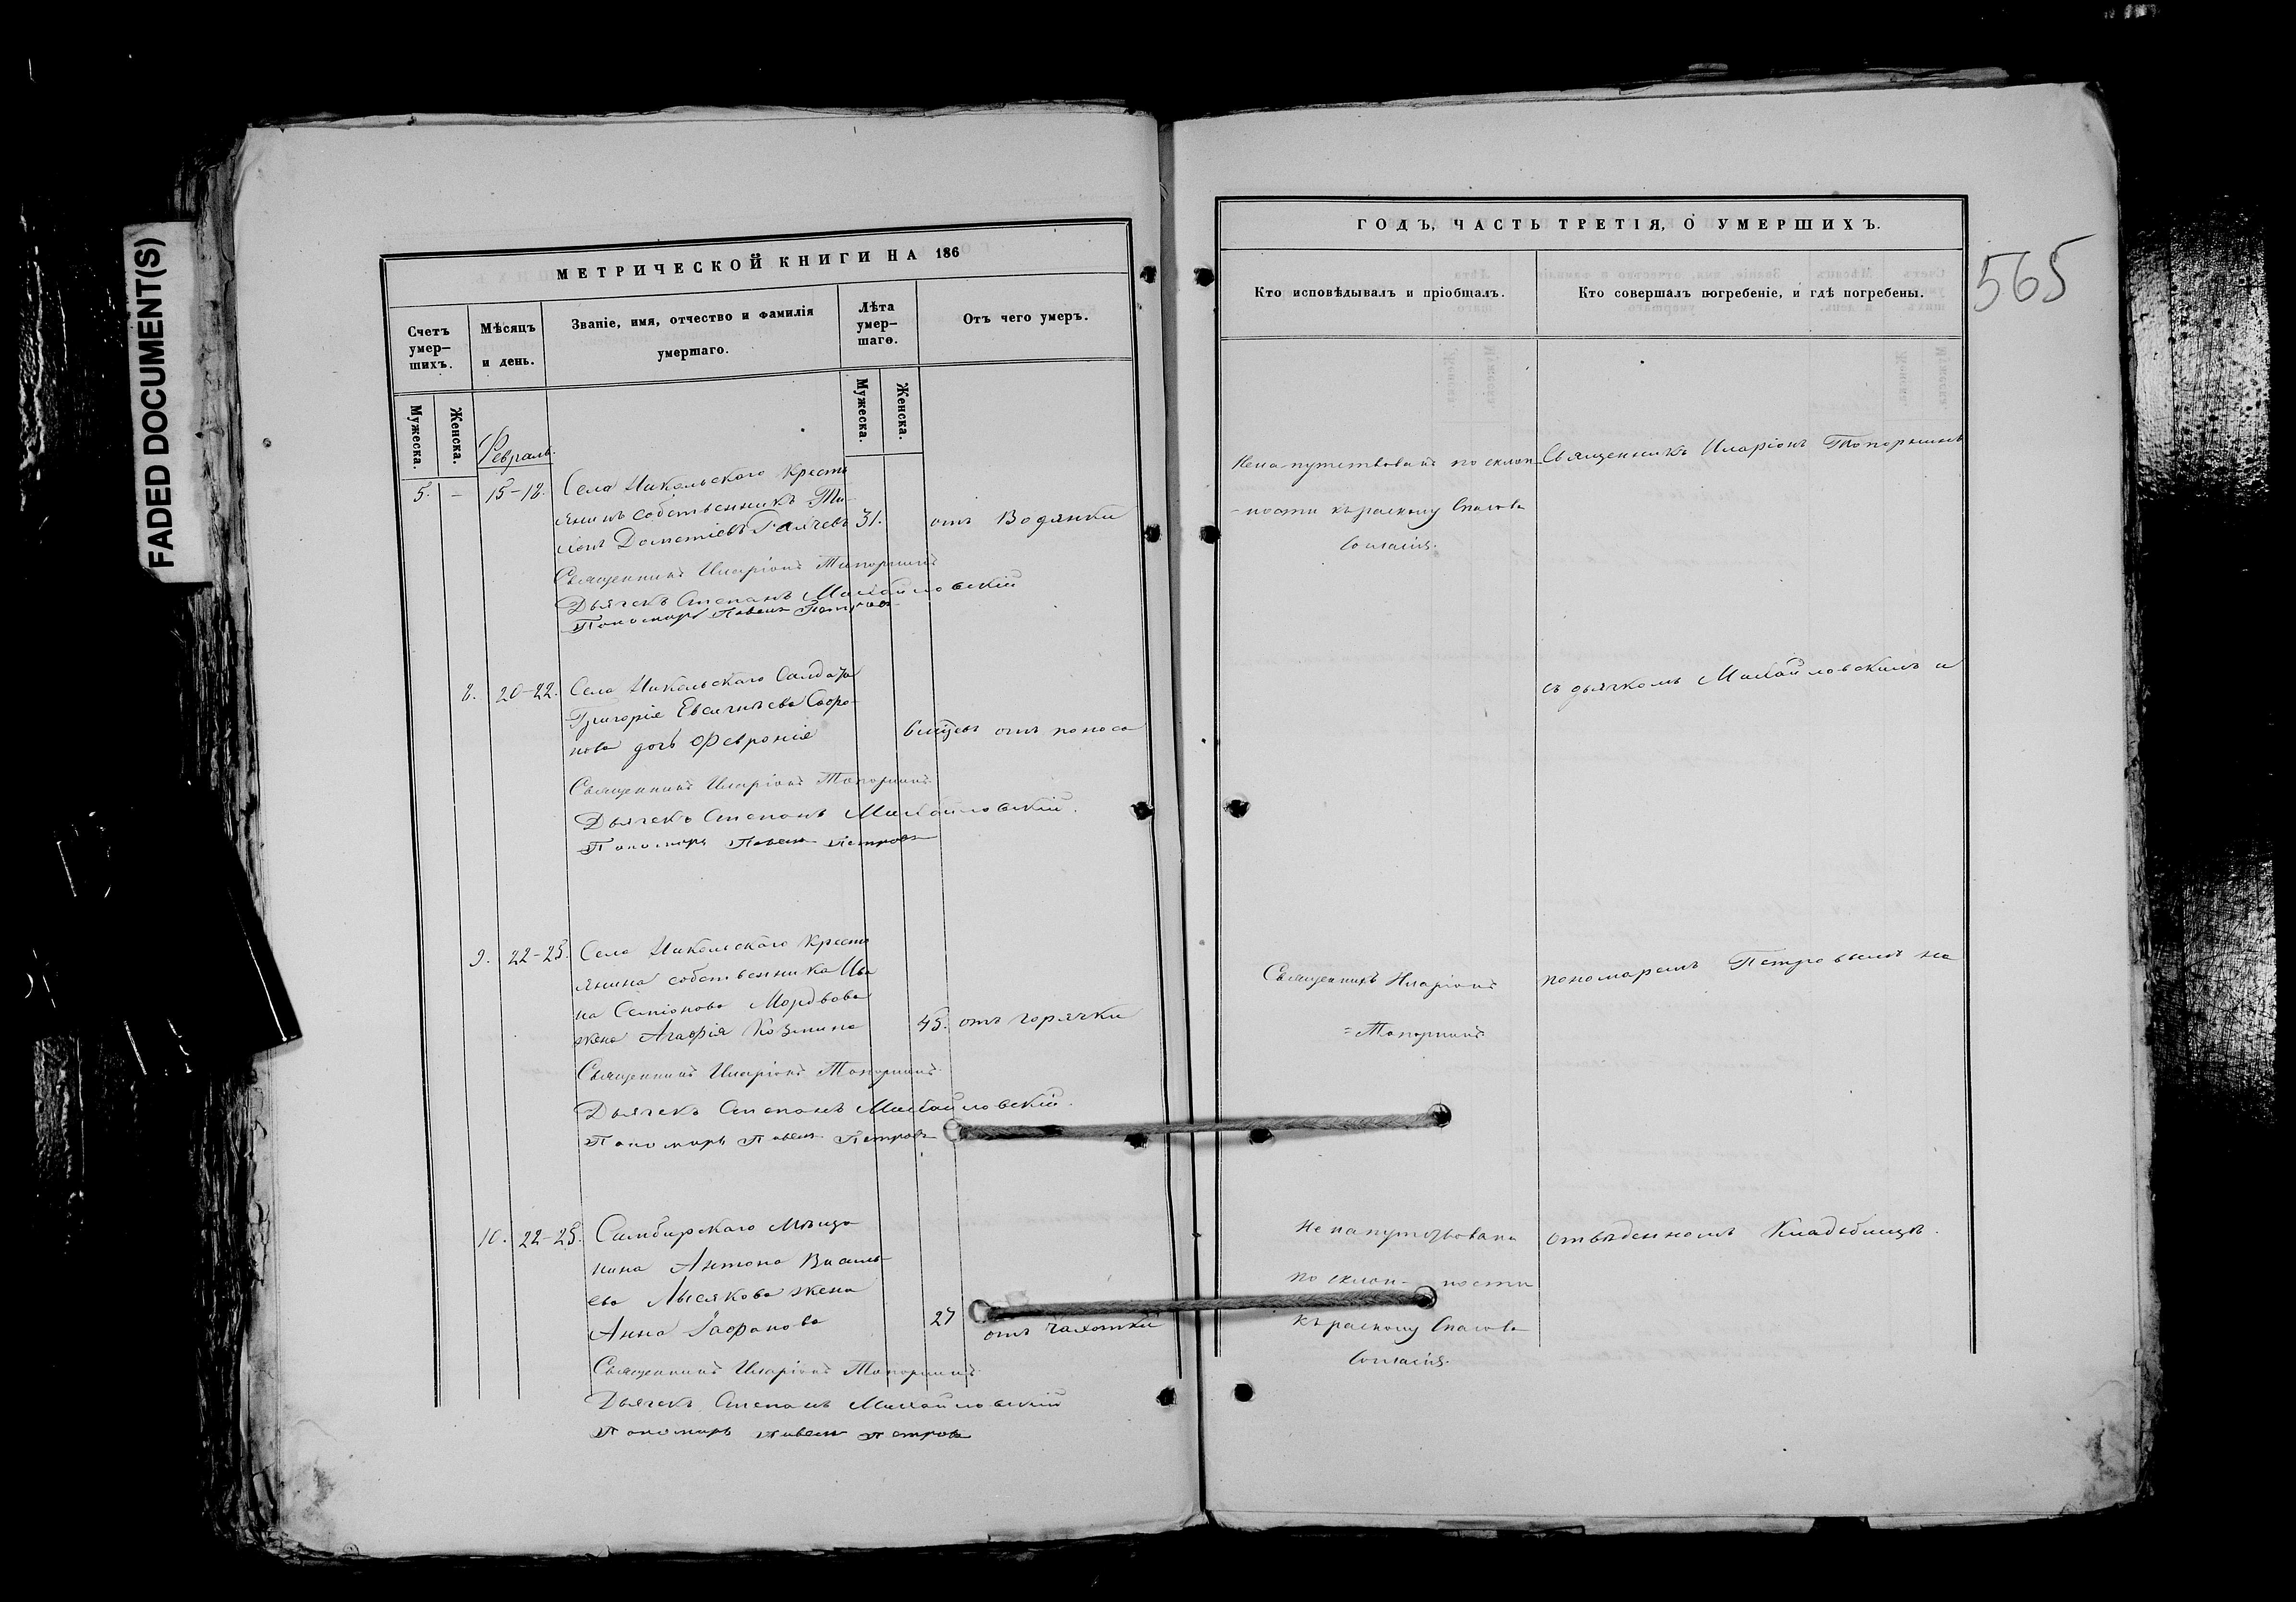 FADED DOCUMENT(S)
МЕТРИЧЕСКОЙ КНИГИ НА 186
Счетъ умер–шихъ.
Мѣсяцъ и день.
Званіе, имя, отчество и фамилія умершаго.
Лѣта умер–шаго.
Отъ чего умеръ.
Мужеска.
Женска.
Мужеска.
Женска.
Февраль.
5. – 15–18. Села Никольскаго Кресть
янинъ собственникъ Ти-
Дометіевъ 31. отъ Водянки
Священникъ Иларіонъ Топорнинъ
Дьячекъ Степанъ Михайловскій
Пономарь Павелъ Петровъ
8. 20–22. Села Никольскаго Салдата
Григорія Евсигнѣева Сафро-
нова дочь Февронія 6 мѣсяц. отъ поноса
Священникъ Иларіонъ Топорнинъ
Дьячекъ Степанъ Михайловскій.
Пономарь Павелъ Петровъ
9. 22–25. Села Никольскаго Кресть
янина собственника Ива
на Семіонова Мордвова
жена Агафія Козмина 45. отъ горячки
Священникъ Иларіонъ Топорнинъ
Дьячекъ Степанъ Михайловскій.
Пономарь Павелъ Петровъ
10. 22–25. Симбирскаго Мѣща
нина Антона Василь
ева Лысякова жена
Анна 27 отъ чахотки
Священникъ Иларіонъ Топорнинъ
Дьячекъ Степанъ Михайловскій
Пономарь Павелъ Петровъ
ГОДЪ, ЧАСТЬ ТРЕТІЯ, О УМЕРШИХЪ.
565
Кто исповѣдывалъ и пріобщалъ.
Кто совершалъ погребеніе, и гдѣ погребены.
Ненапутствованъ по склон
-ности къ расколу Спасова
Согласія.
Священникъ Иларіонъ Топорнинъ
съ дьячкомъ Михайловскимъ и
Священникъ Иларіонъ
=Топорнинъ
пономаремъ Петровымъ на
Не напутствована
по склон- ности
къ расколу Спасова
Согласія.
отведенномъ Кладбищѣ.